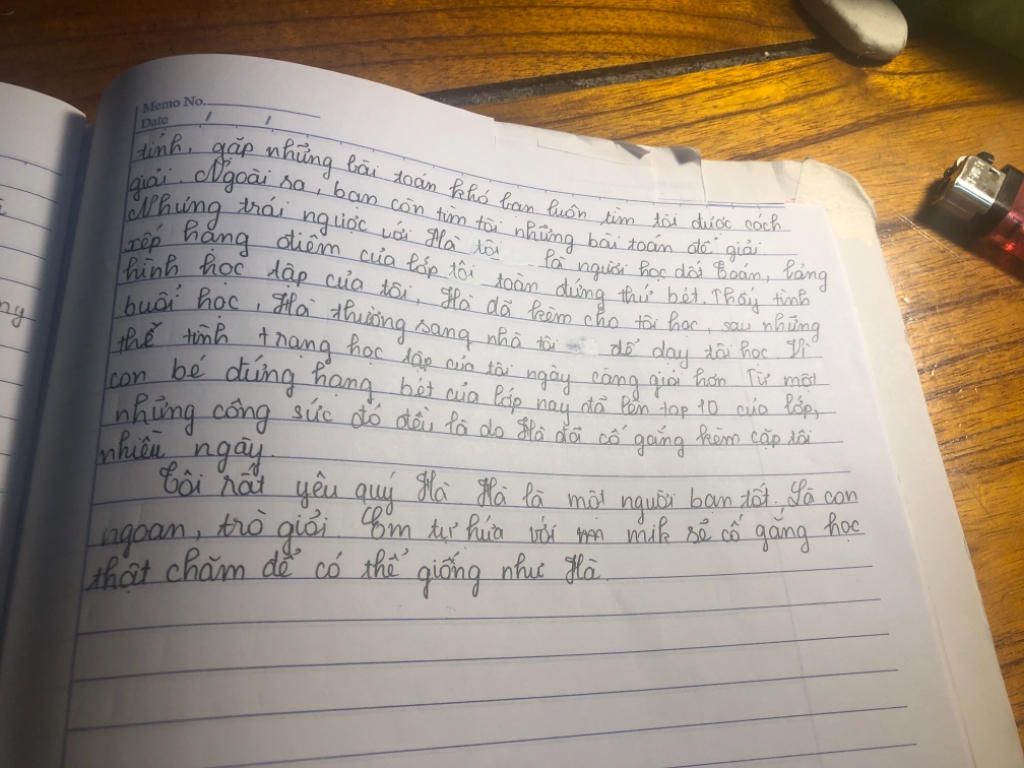 Memo No.
Date / /
tính, gặp những bài toán khó bạn luôn tìm tòi được cách
giải. Ngoài ra, bạn còn tìm tòi những bài toán để giải.
Nhưng trái ngược với Hà tôi là người học dốt Toán, bảng
xếp hạng điểm của lớp tôi toàn đứng thứ bét. Thấy tình
hình học tập của tôi, Hà đã kèm cho tôi học, sau những
buổi học, Hà thường sang nhà tôi để dạy tôi học. Vì
thế tình trạng học tập của tôi ngày càng giỏi hơn. Từ một
con bé đứng hạng bét của lớp nay đã lên top 10 của lớp,
những công sức đó đều là do Hà đã cố gắng kèm cặp tôi
nhiều ngày.
Tôi rất yêu quý Hà. Hà là một người bạn tốt. Là con
ngoan, trò giỏi. Em tự hứa với mik sẽ cố gắng học
thật chăm để có thể giống như Hà.